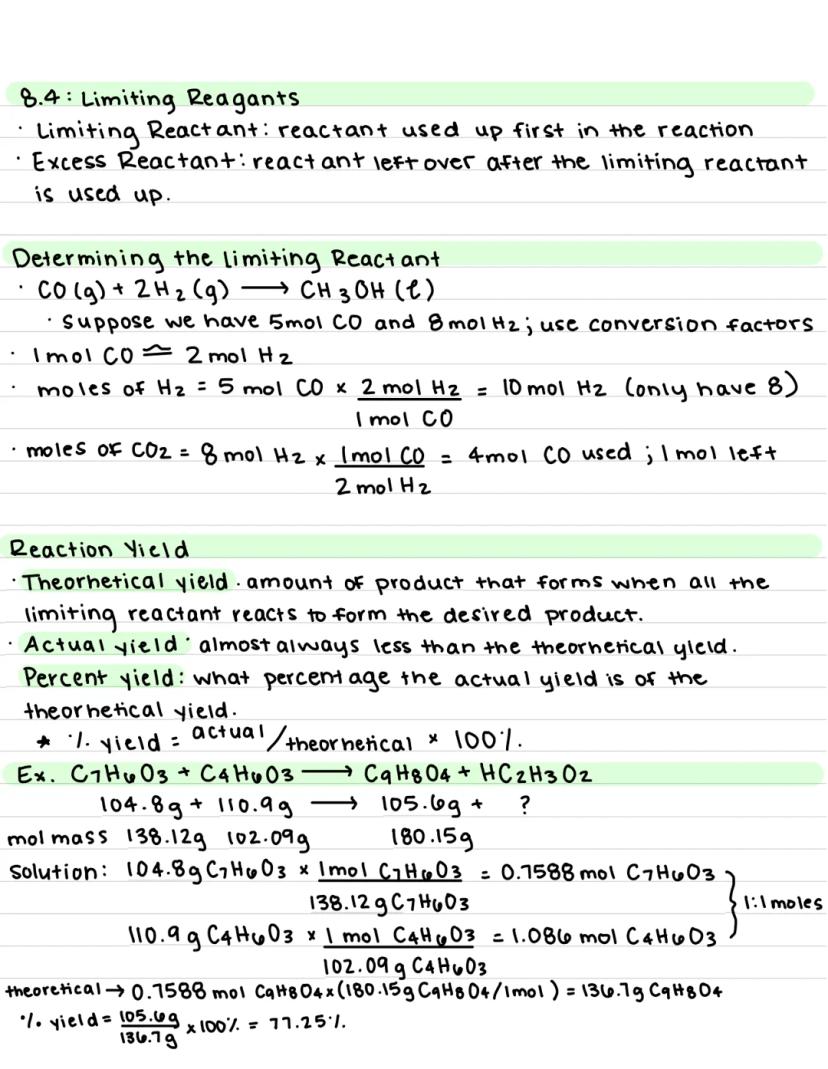 8.4: Limiting Reagants
· Limiting Reactant: reactant used up first in the reaction
· Excess Reactant: reactant left over after the limiting reactant
is used up.
Determining the Limiting Reactant
· CO (g) + 2H₂ (g) ⟶ CH₃OH (ℓ)
· Suppose we have 5mol CO and 8 mol H₂; use conversion factors
· 1mol CO ≏ 2 mol H₂
· moles of H₂ = 5 mol CO × 2 mol H₂ = 10 mol H₂ (only have 8)
1 mol CO
· moles of CO₂ = 8 mol H₂ × 1mol CO = 4mol CO used ; 1 mol left
2 mol H₂
Reaction Yield
· Theorhetical yield. amount of product that forms when all the
limiting reactant reacts to form the desired product.
· Actual yield· almost always less than the theorhetical yield.
Percent yield: what percentage the actual yield is of the
theorhetical yield.
* % yield = actual/theorhetical × 100%.
Ex. C₇H₆O₃ + C₄H₆O₃ ⟶ C₉H₈O₄ + HC₂H₃O₂
104.8g + 110.9g ⟶ 105.6g + ?
mol mass 138.12g 102.09g 180.15g
Solution: 104.8g C₇H₆O₃ × 1mol C₇H₆O₃ = 0.7588 mol C₇H₆O₃
138.12 g C₇H₆O₃
} 1:1 moles
110.9 g C₄H₆O₃ × 1 mol C₄H₆O₃ = 1.086 mol C₄H₆O₃
102.09 g C₄H₆O₃
theoretical → 0.7588 mol C₉H₈O₄ × (180.15g C₉H₈O₄/1mol) = 136.7g C₉H₈O₄
% yield = 105.6g × 100% = 77.25%.
136.7g